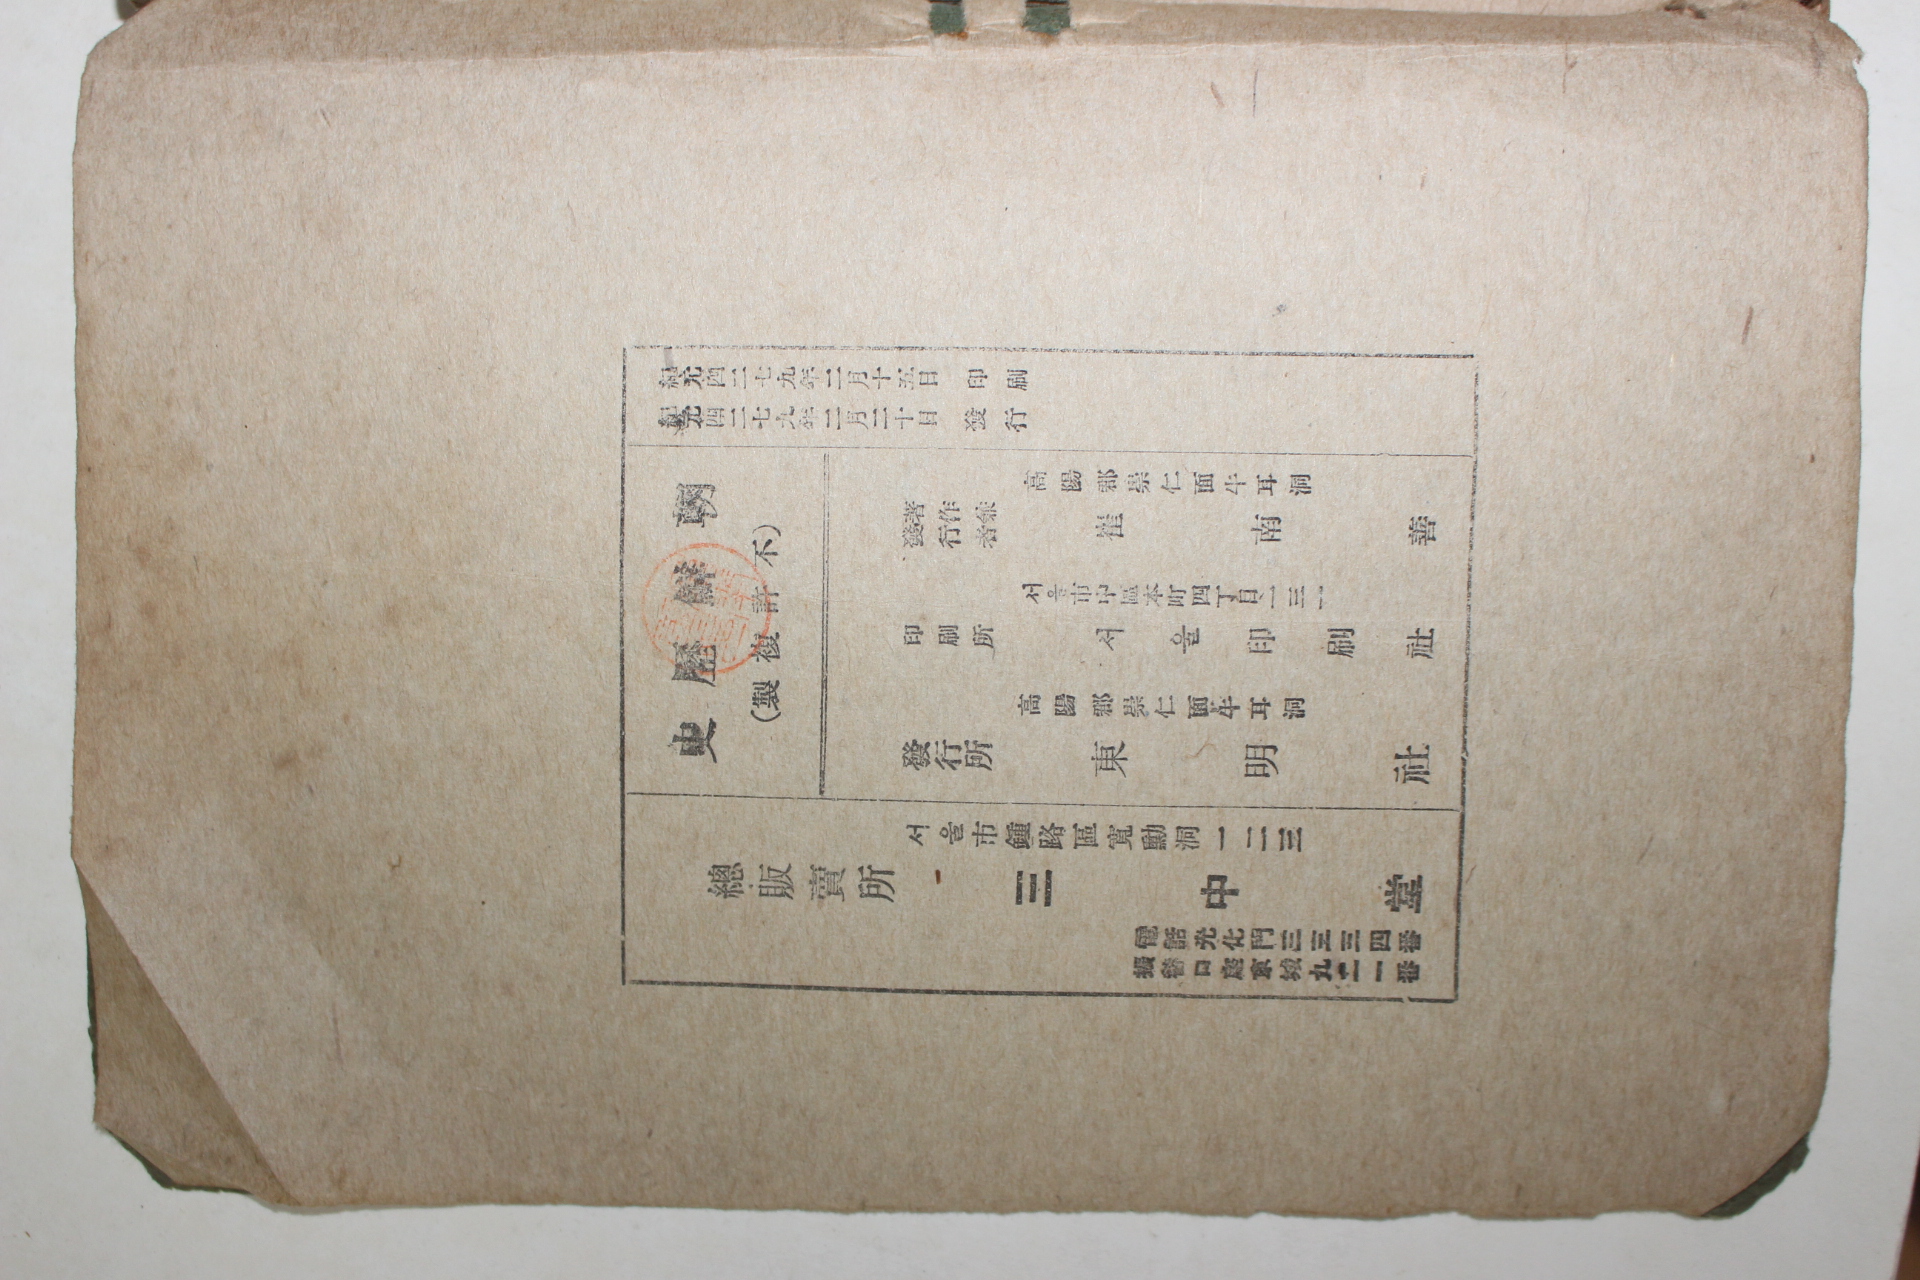 紀元四二七九年二月十五日 印刷
紀元四二七九年二月二十日 發行
朝鮮歷史
(不許複製)
高陽郡崇仁面牛耳洞
著作兼
發行者 崔南善
서울市中區本町四丁目
印刷所 서울印刷社
高陽郡崇仁面牛耳洞
發行所 東明社
서울市鍾路區寬勳洞一二三
總販賣所 三中堂
電話光化門三三三四番
振替口座京城九二一番